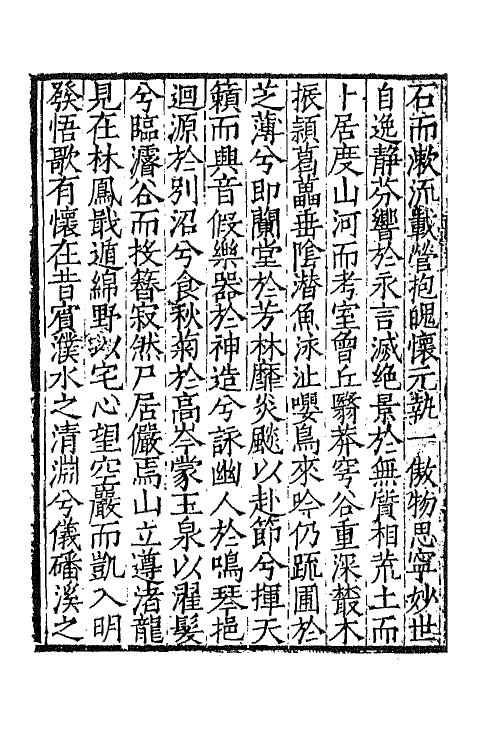 石而漱流載營抱魄懷元執一傲物思寧妙世
自逸靜芬響於永言滅絕景於無質相荒土而
卜居度山河而考室曾丘翳莽穹谷重深叢木
振穎葛藟垂陰潛魚泳沚嚶鳥來吟仍疏圃於
芝薄兮即闌堂於芳林靡炎飈以赴節兮揮天
籟而興音假樂器於神造兮詠幽人於鳴琴挹
迴源於別沼兮食秋菊於高岑蒙玉泉以濯髮
兮臨濬谷而投簪寂然尸居儼焉山立遵渚龍
見在林鳳戢遁綿野以宅心望空巖而凱入明
發悟歌有懷在昔賓濮水之清淵兮儀磻溪之